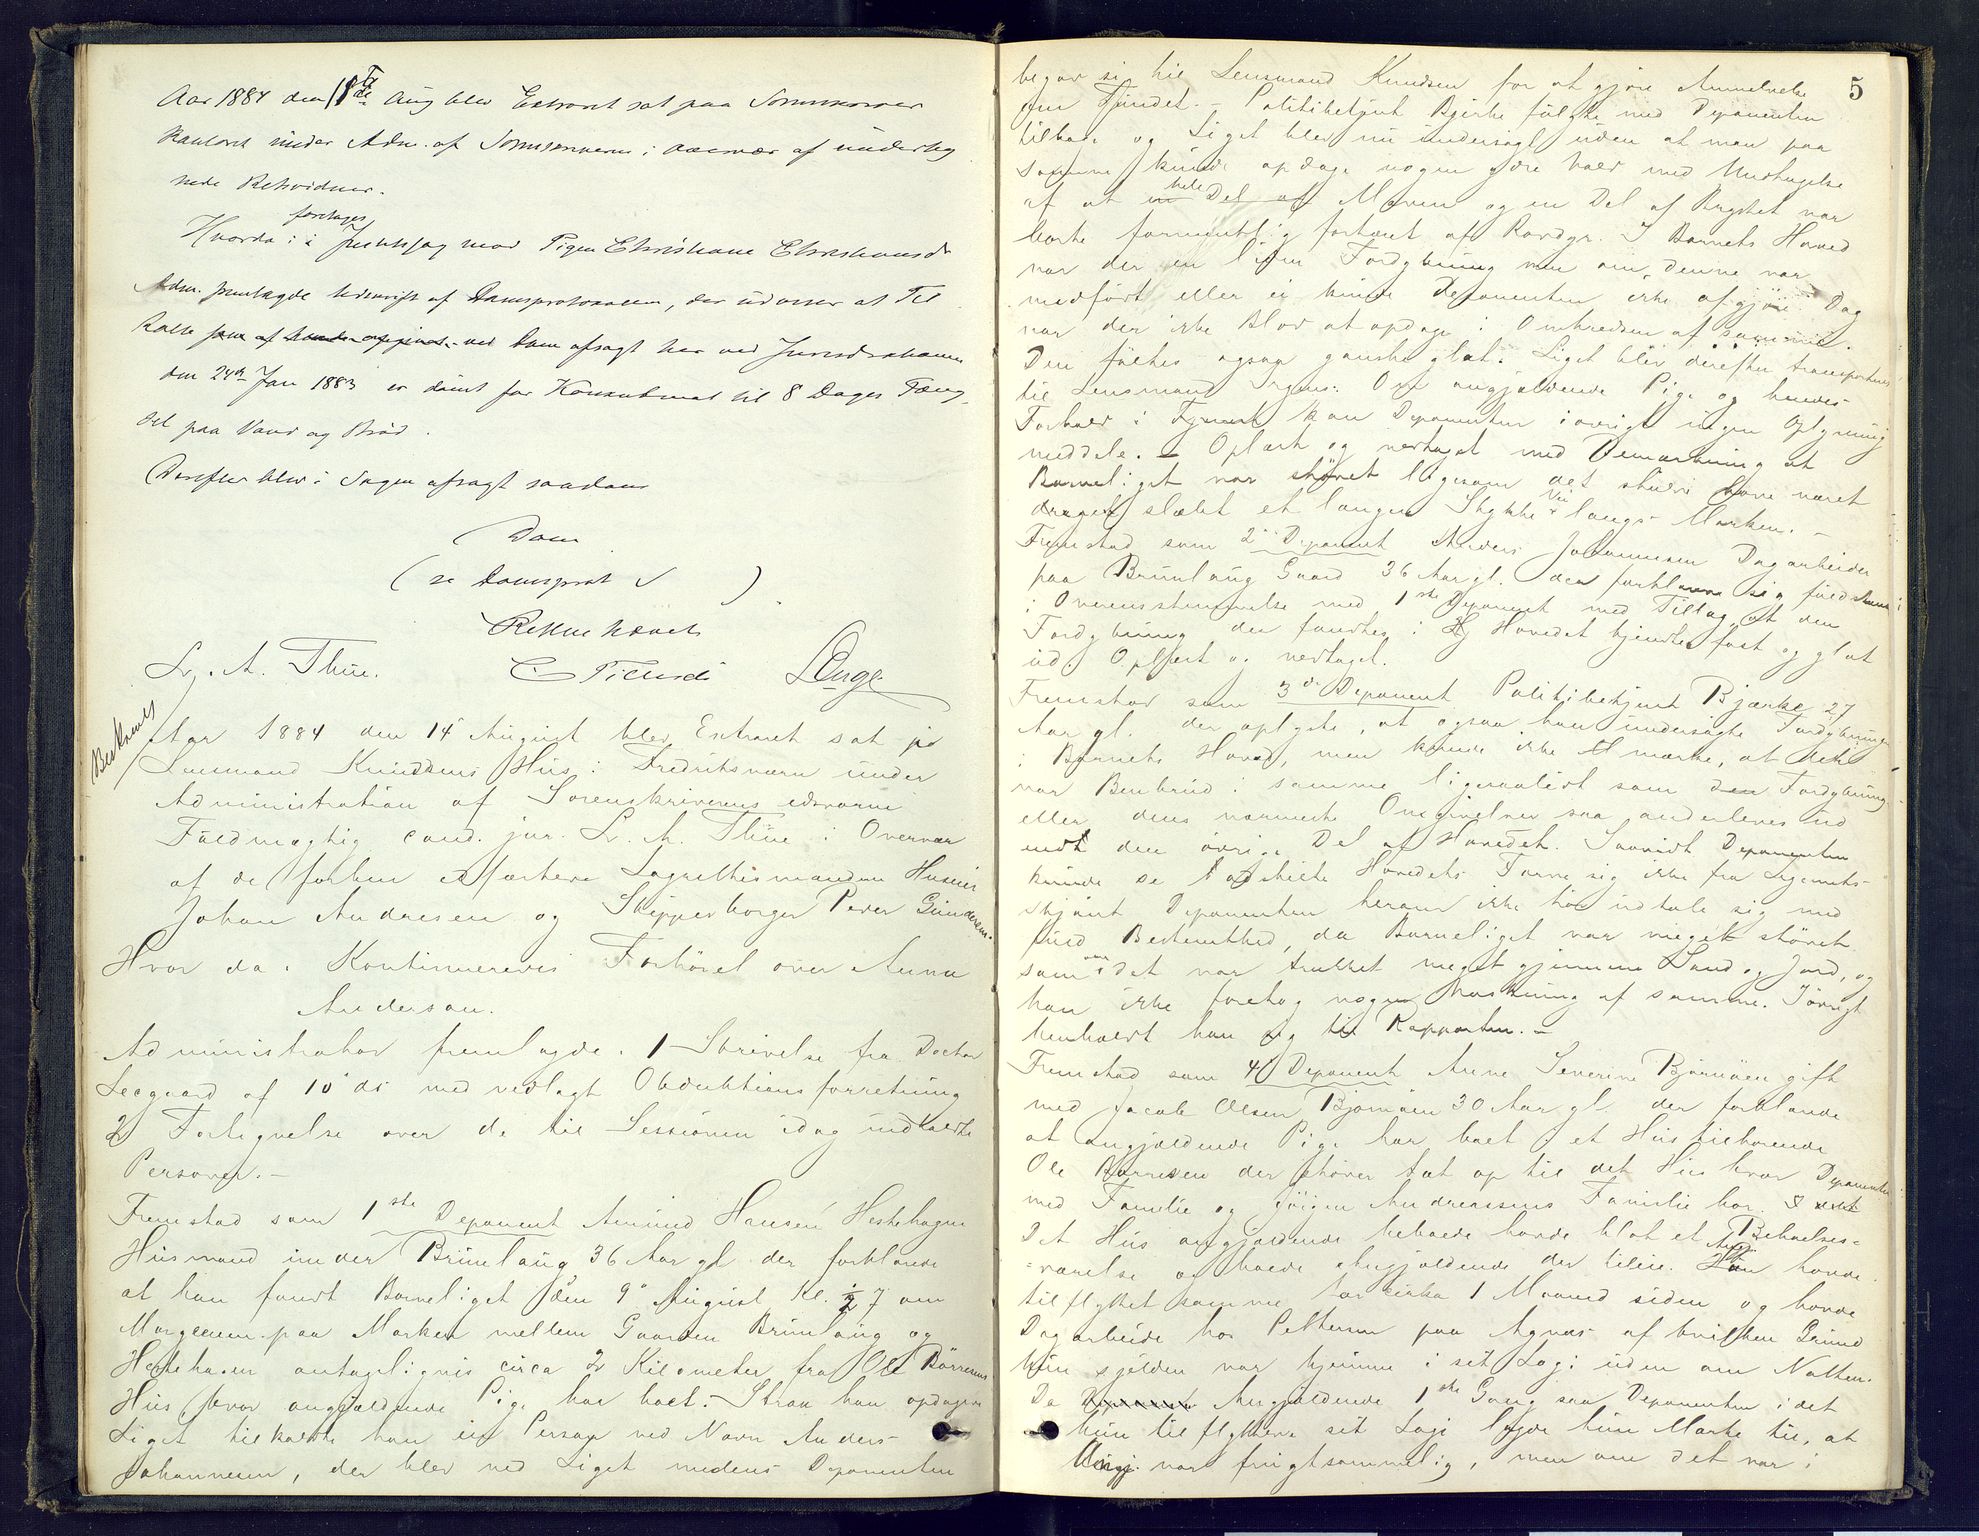 Aar 1884 den 11te Aug blev Extraret sat paa Sorenskriver
kontoret under Adm. af Sorenskriveren i Overvær af underteg
nede Retsvidner.
Hvorda i Justitssag mod Pigen Christiane Christiansdr
foretages
Adm. fremlagde Udskrift af Domsprotocollen, der udviser at Til
talte ved Dom afsagt her ved Jurisdictionen
den 24de Jan 1883 er dømt for Konkubinat til 8 Dages Fæng
sel paa Vand og Brød.
Derefter blev i Sagen afsagt saadan
Dom
(se Domsprot )
Retten hævet
L. A. Thue.
Beskrevet
Aar 1884 den 14 August blev Extraret sat på
Lensmand Knudsens Hus i Fredriksværn under
Administration af Sorenskriverens edsvorne
Fuldmægtig cand. jur. L. A. Thue i Overvær
af de Lagrettesmænder Huseier
Johan Andresen og Skipperborger Peder Gundersen.
Hvor da: Kontinueredes Forhöret over Anna
Anderson.
Administrator fremlagde. 1 Skrivelse fra Doctor
Leegaard af 10 ds med vedlagt Obduktionsforretning
2 Fortegnelse over de til Sessionen idag indkaldte
Personer. –
Fremstod som 1ste Deponent Amund Hansen Hestehagen
Husmand under Brunlaug 36 Aar gl. der forklarede
at han fandt Barneliget den 9 August Kl. ½ 7 om
Morgenen paa Marken mellem Gaarden Brunlaug og
Hestehagen antageligvis circa 2 Kilometer fra Ole Börresens
Hus hvor angjældende Pige har boet. – Strax han opdagede
Liget tilkaldte han en Person ved Navn Anders
Johannesen, der blev ved Liget medens Deponenten
5
begav sig til Lensmand Knudsen for at gjöre Anmeldelse
om Fundet. – Politibetjent Bjerke fulgte med Deponenten
tilbage og Liget blev nu undersögt uden at man paa
samme kunde opdage nogen ydre Vold med Undtagelse
af at hele Del af Maven og en Del af Brystet var
borte formentlig fortæret af Rovdyr. I Barnets Hoved
var der en liden Fordybning men om denne var
medfört eller ei kunde Deponenten ikke afgjöre. Dog
var der ikke Blod at opdage i Omkredsen af samme.
Den föltes ogsaa ganske glat. Liget blev derefter transporteret
til Lensmand Om angjældende Pige og hendes
Forhold i kan Deponenten iövrigt ingen Oplysning
meddele. – Oplæst og vedtaget med Bemærkning at
Barneliget var stövet ligesom det skulde have været
draget slæbt et langen Stykke Vei langs Marken. –
Fremstod som 2 Deponent Anders Johannesen Dagarbeider
paa Brunlaug Gaard 36 Aar gl. der forklarede sig fuldstændig
i Overensstemmelse med 1ste Deponent med Tillæg, at den
Fordybning der fandtes i Hovedet kjendtes fast og glat
ud. Oplæst og vedtaget.
Fremstod som 3de Deponent Politibetjent Bjærke 27
Aar gl. der oplyste, at ogsaa han undersögte Fordybningen
i Barnets Hoved, men kunde ikke mærke, at det
var Benbrud i samme ligesaalidt som den Fordybning
eller dens nærmeste Omgivelser saa anderledes ud
end den övrige Del af Hovedet. Saavidt Deponenten
kunde se adskilte Hovedets Farve sig ikke fra Legemets
skjönt Deponenten herom ikke tör udtale sig med
fuld Bestemthed, da Barneliget var meget stövet
som om det var trukket meget gjennem Sand og Jord, og
han ikke foretog nogen Vaskning af samme. Iövrigt
henholdt han sig til Rapporten. –
Fremstod som 4 Deponent Anne Severine Björnöen gift
med Jacob Olsen Björnöen 30 Aar gl. der forklarede
at angjældende Pige har boet i et Hus tilhörende
Ole Börresen der stöder tæt op til det Hus hvor Deponenten
med Familie og Jörgen Andreassens Familie bor.
Det Hus angjældende beboede havde blot et Beboelses=
værelse og boede Angjældende der tilleie. Ang. havde
tilflyttet samme for cirka 1 Maaned siden og havde
Dagarbeide hos Pettersen paa Agnæs af hvilken Grund
hun sjelden var hjemme i sit Logi uden om Natten.
Da Angjældende 1ste Gang saa Deponenten i det
hun tilflyttede sit Logi lagde hun Mærke til, at
Angj. var frugtsommelig, men om det var i